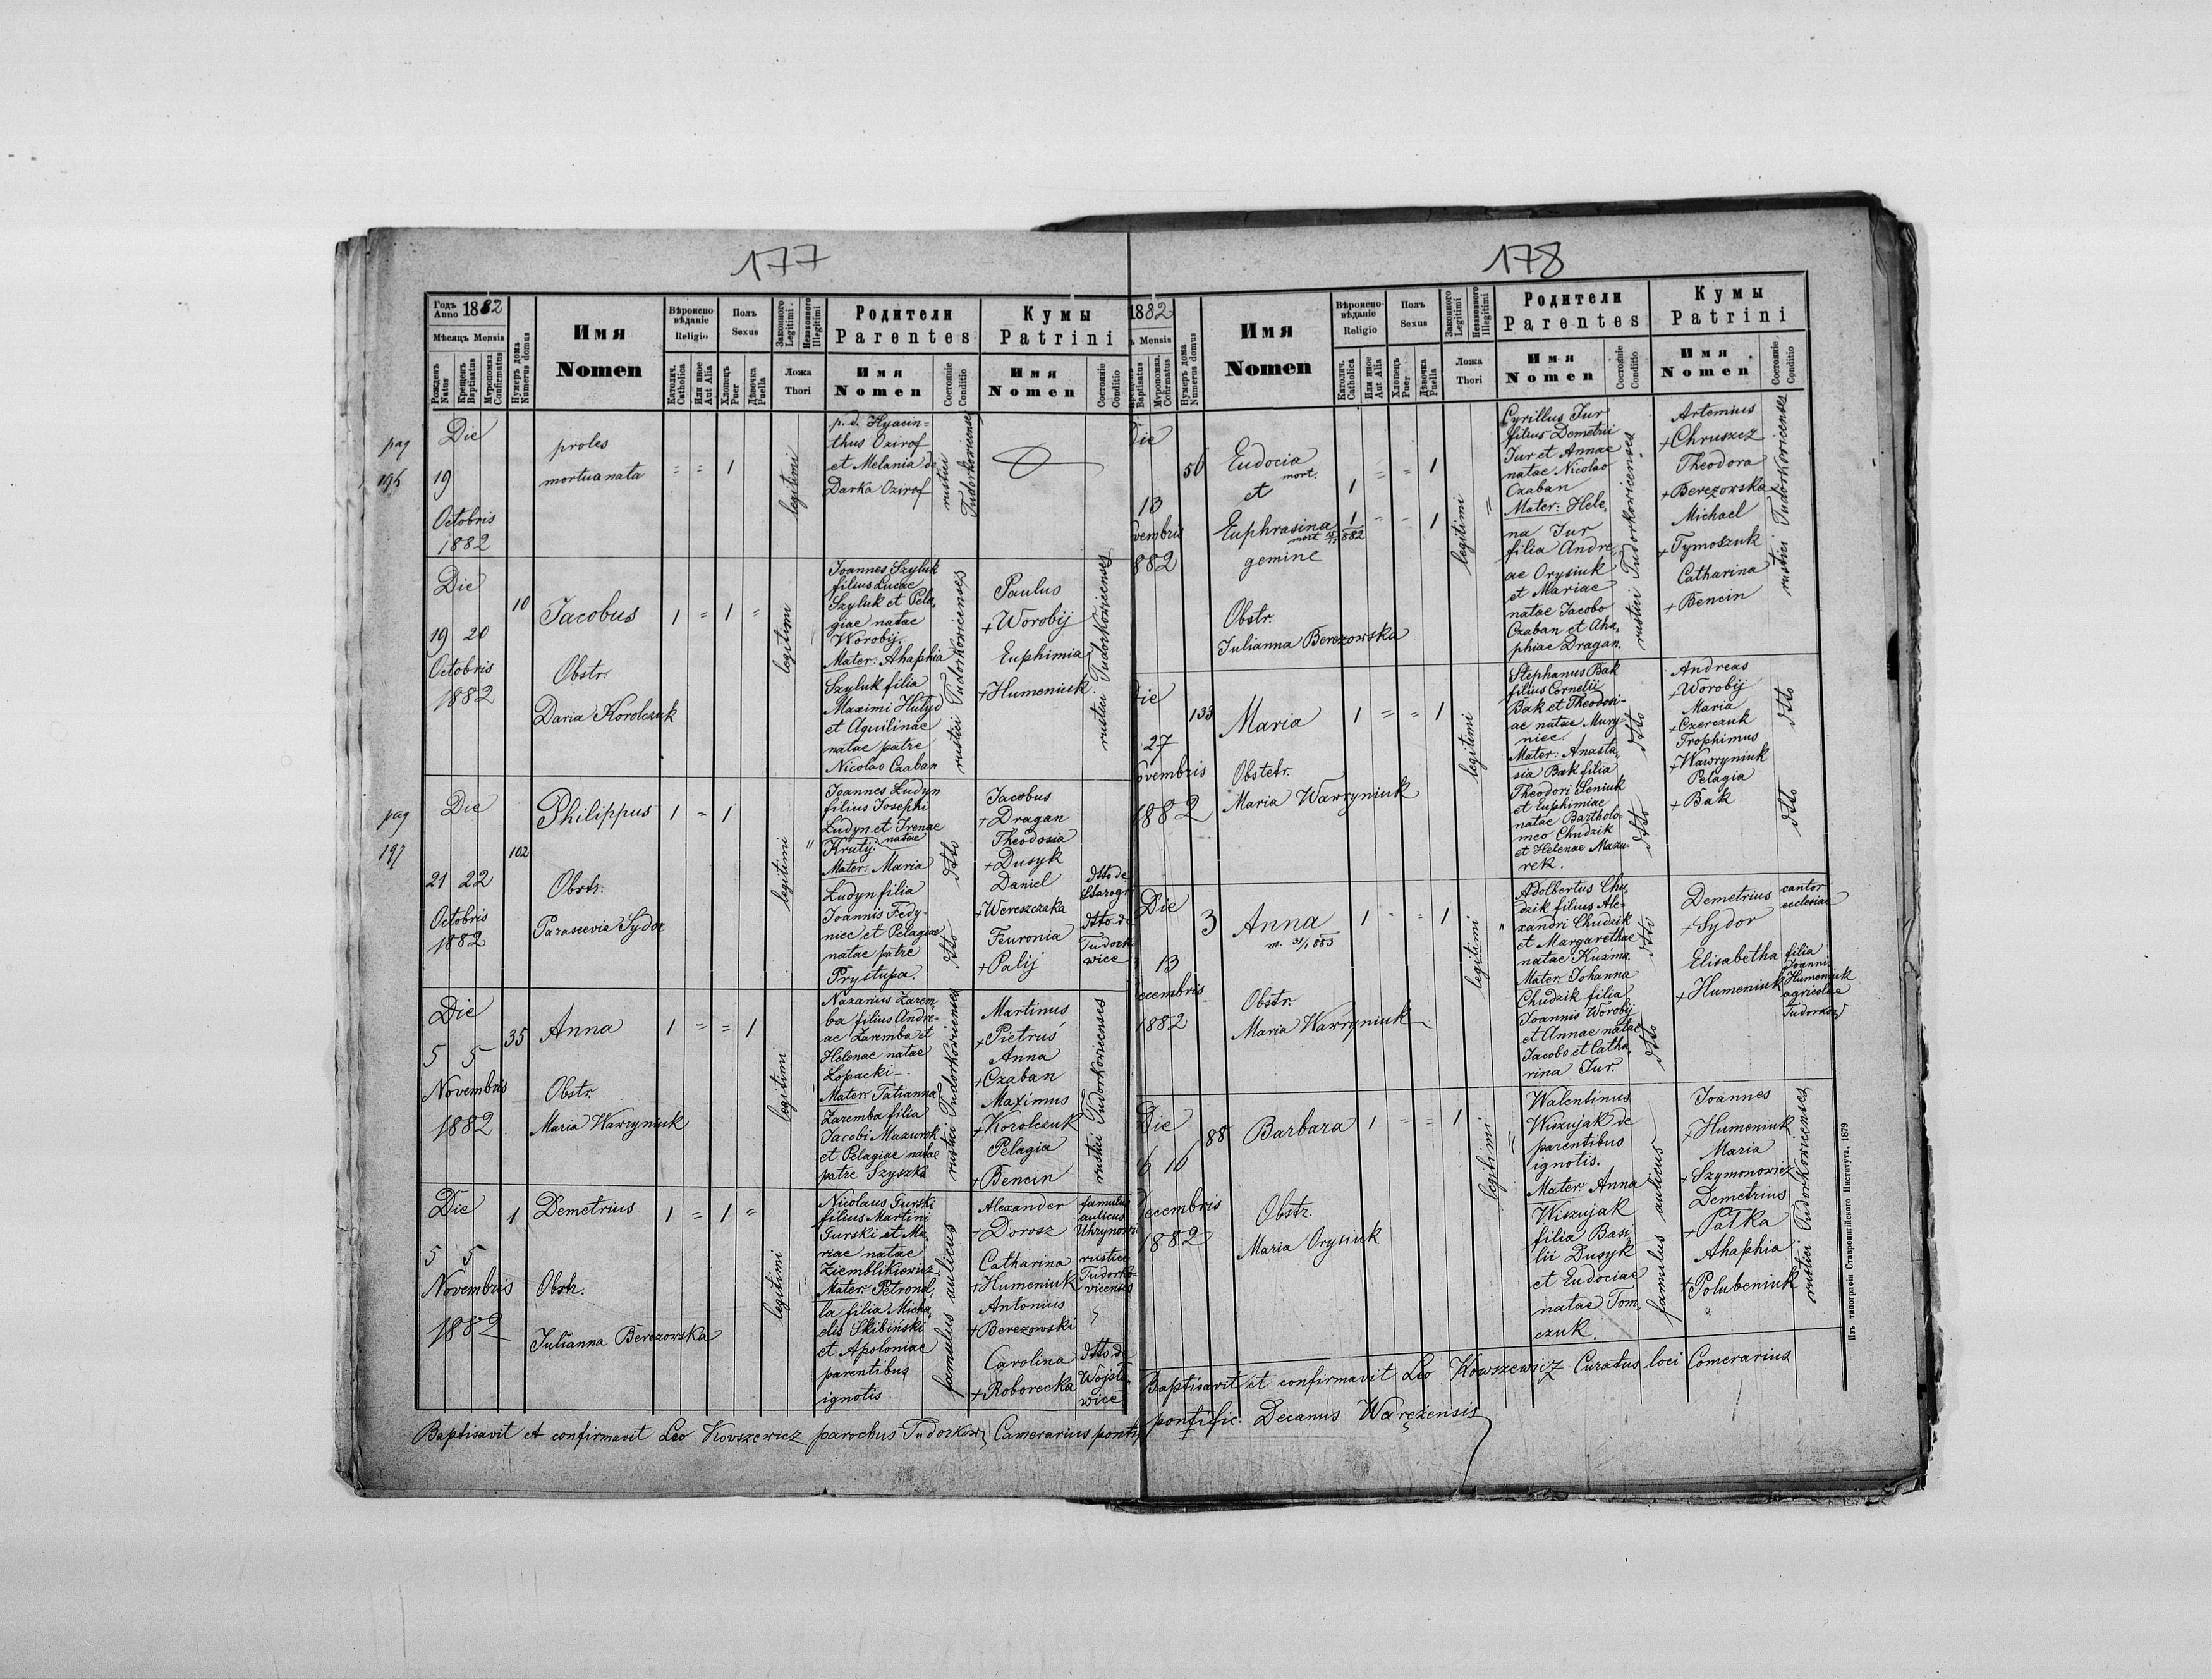 177
Годъ Anno 1882
Мѣсяцъ Mensis
Рожденъ Natus
Крещенъ Baptisatus
Муропомаз. Confirmatus
Нумеръ дома Numerus domus
Имя Nomen
Вѣроисповѣданіе Religio
Католич. Catholica
Или иное Aut Alia
Полъ Sexus
Хлопецъ Puer
Дѣвочка Puella
Законного Legitimi
Незаконного Illegitimi
Ложа Thori
Родители Parentes
Имя Nomen
Состояніе Conditio
Кумы Patrini
Имя Nomen
Состояніе Conditio
pag
Die
19
Octobris
1882
proles
mortua nata
= = 1
legitimi
p. d. Hyacin=
thus Ozirof
et Melania de
Darka Ozirof
rustici
Tudorkovicenses
Die
19 20
Octobris
1882
10
Jacobus
Obstr.
Daria Korolczuk
1 = 1 =
legitimi
Joannes Szyluk
filius Lucae
Szyluk et Pela,
giae natae
Worobij.
Mater: Ahaphia
Szyluk filia
Maximi Hulyd
et Aquilinae
natae patre
Nicolao Czaban
rustici Tudorkovicenses
Paulus
+Worobij
Euphimia
+Humeniuk
rustici Tudorkovicenses
pag
197
Die
21 22
Octobris
1882
102
Philippus
Obstr.
Parascevia Sydor
1 = 1
legitimi "
Joannes Ludyn
filius Josephi
Ludyn et Irenae
Krutij. natae
Mater: Maria
Ludyn filia
Joannis Fedy-
niec et Pelagiae
natae patre
Prystupa.
dtto
dtto
Jacobus
+Dragan
Theodosia
+Dusyk
Daniel
+Wereszczaka
Feuronia
+Palij
dtto de
Starogr
dtto de
Tudorko
wice
Die
5 5
Novembris
1882
35
Anna
Obstr.
Maria Wawryniuk
1 = = 1
legitimi
Nazarius Zarem
ba filius Andre-
ae Zaremba et
Helenae natae
Łopacki-
Mater: Tatianna
Zaremba filia
Jacobi Mazurek
et Pelagiae natae
patre Szyszka
rustici Tudorkovicenses
Martinus
+Pietruś
Anna
+Czaban
Maximus
+Korolczuk
Pelagia
+Bencin
rustici Tudorkovicenses
Die
5 5
Novembris
1882
1
Demetrius
Obstr.
Julianna Berezowska
1 = 1 =
legitimi
Nicolaus Gurski
filius Martini
Gurski et Ma,
riae natae
Ziemblikiewicz
Mater: Petronel,
la filia Micha,
elis Skibiński
et Apoloniae
parentibus
ignotis.
famulus aulicus
Alexander
+Dorosz
Catharina
+Humeniuk
Antonius
+Berezowski
Carolina
+Roborecka
famulus
aulicus
Uhrynowi
rustica
Tudorko-
vicenses
"
dtto de
Wojsła,
wice
Baptisavit et confirmavit Leo Kowszewicz parochus Tudorkow. Camerarius pontif
178
1882
Mensis
Baptisatus
Муропомаз. Confirmatus
Нумеръ дома Numerus domus
Имя Nomen
Вѣроисповѣданіе Religio
Католич. Catholica
Или иное Aut Alia
Полъ Sexus
Хлопецъ Puer
Дѣвочка Puella
Законного Legitimi
Незаконного Illegitimi
Ложа Thori
Родители Parentes
Имя Nomen
Состояніе Conditio
Кумы Patrini
Имя Nomen
Состояніе Conditio
Die
13
vembris
882
56
Eudocia
mort.
et
Euphrasina
mort 882
gemine
Obstr.
Julianna Berezowska
1 = = 1
1 = = 1
legitimi =
Cyrillus Jur
filius Demetrii
Jur et Annae
natae Nicolao
Czaban
Mater: Hele,
na Jur
filia Andre,
ae Orysiuk
et Mariae
natae Jacobo
Czaban et Aha,
phiae Dragan.
rustici Tudorkovicenses
Artemius
+Chruszcz
Theodora
+Berezowska
Michael
+Tymoszuk
Catharina
+Bencin
rustici Tudorkovicenses
Die
27
ovembris
1882
133
Maria
Obstetr.
Maria Wawryniuk
1 = = 1
legitimi
Stephanus Bak
filius Cornelii
Bak et Theodosi-
ae natae Mury-
niec.
Mater: Anasta,
sia Bak filia
Theodori Seniuk
et Euphimiae
natae Bartholo-
meo Chudzik
et Helenae Mazu-
rek.
dtto
dtto
Andreas
+Worobij
Maria
+Czerczuk
Trophimus
+Wawryniuk
Pelagia
+Bak
dtto
dtto
Die
13
ecembris
1882
3
Anna
m. 31/1 883
Obstr.
Maria Wawryniuk
1 = = 1
legitimi "
Adolbertus Chu,
dzik filius Ale-
xandri Chudzik
et Margarethae
natae Kuźma.
Mater: Johanna
Chudzik filia
Joannis Worobij
et Annae natae
Jacobo et Catha,
rina Jur.
dtto
dtto
Demetrius
+Sydor
Elisabetha
+Humeniuk
cantor
ecclesiae
filia
Joannis
Humeniuk
agricolae
Tudorkow
Die
16 16
Decembris
1882
88
Barbara
Obstr.
Maria Orysiuk
1 = = 1
legitimi =
Walentinus
Wiszujak de
parentibus
ignotis.
Mater: Anna
Wiszujak
filia Basi,
lii Dusyk
et Eudociae
natae Tom,
czuk.
famulus aulicus
Joannes
+Humeniuk
Maria
+Szymonowicz
Demetrius
+Pałka
Ahaphia
+Polubeniuk
rustici Tudorkovicenses
Baptisavit et confirmavit Leo Kowszewicz Curatus loci Comerarius
pontific. Decanus Waręzensis
Изъ типографіи Ставропигійского Института, 1879